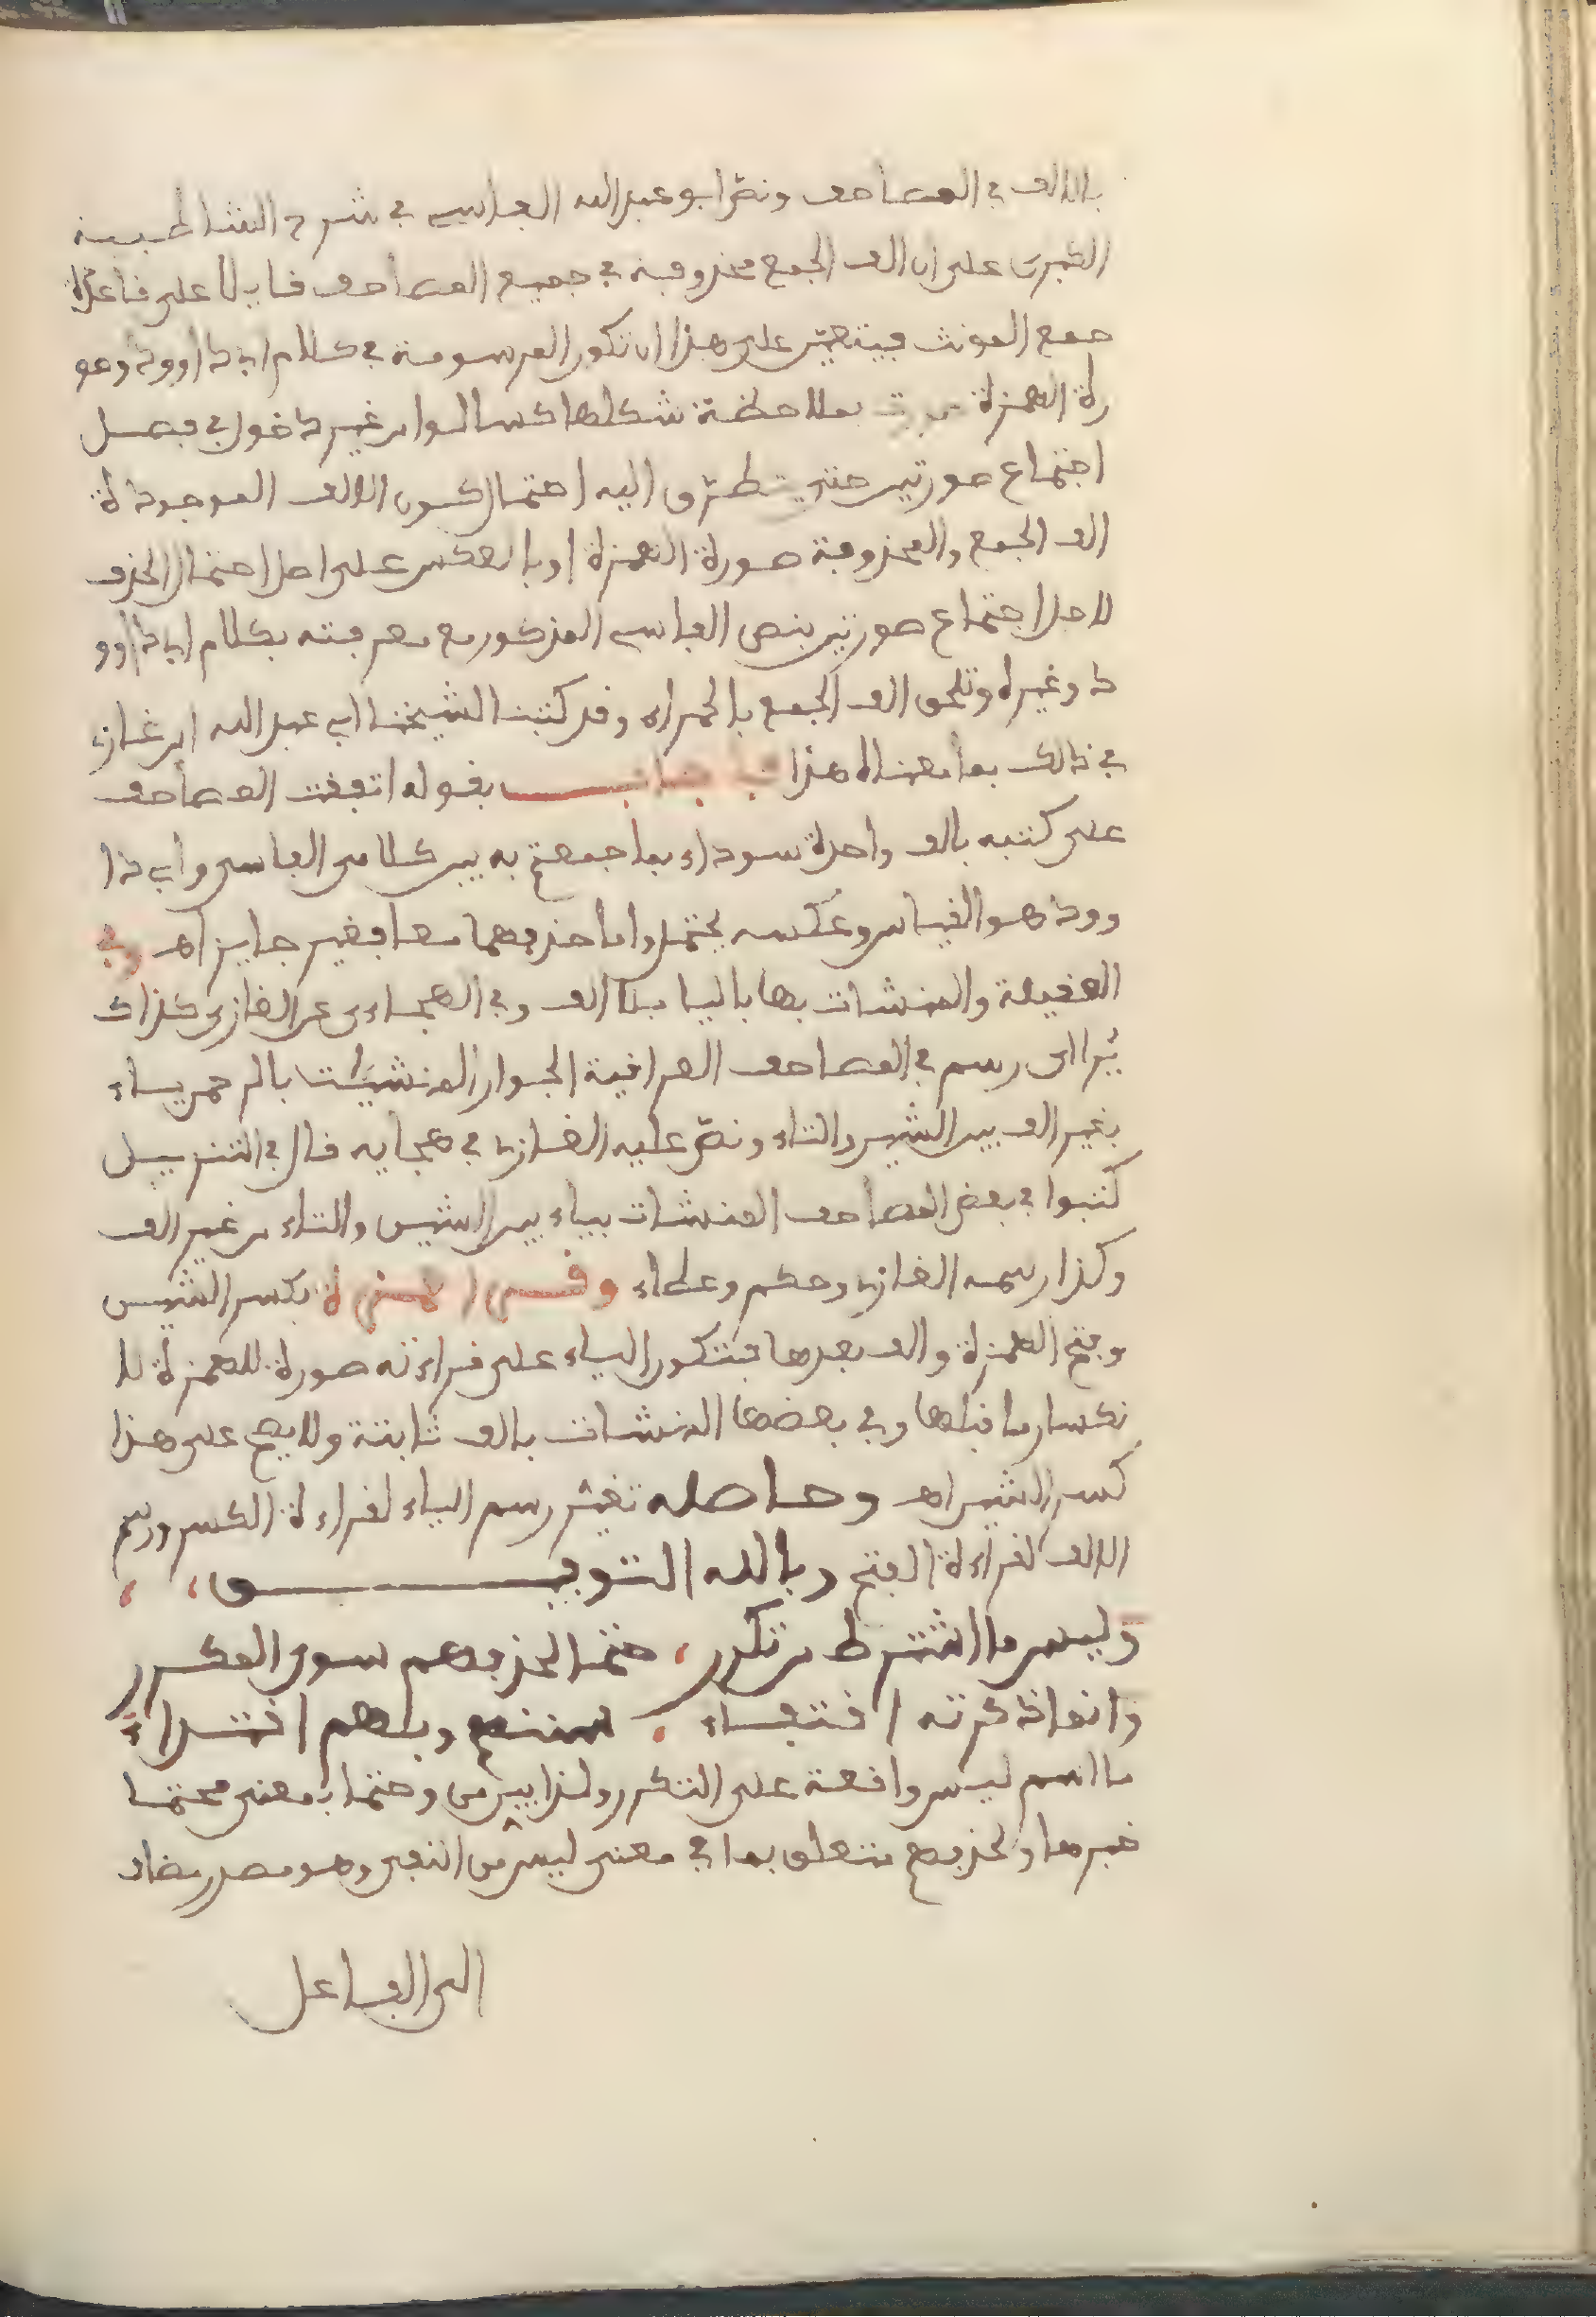 بالالف في المصاحف ونص ابو عبد الله الفاسي في شرح الشاطبية
الكبرى على ان الف الجمع محذوفة في جميع المصاحف قايلا على قاعدة
جمع المونث فيتعين على هذا ان تكون المرسومة في كلام ابي داوود صو
رة الهمزة بملاحظة شكلها كسالوا من غير دخول في فصل
اجتماع صورتين حتى يتطرق اليه احتمال كون الالف الموجودة
الف الجمع والمحذوفة صورة الهمزة او بالعكس على اصل احتمال الحذف
لاجل اجتماع صورتين بنص الفاسي المذكور مع معرفته بكلام ابي داوو
د وغيره وتلحق الف الجمع بالحمراء وقد كتبت لشيخنا ابي عبد الله ابن غازي
في ذالك بما معناه هذا فاجاب بقوله اتفقت المصاحف
على كتبه بالف واحدة سوداء بما جمعتم به بين كلامي الفاسي وابي دا
وود هو القياس وعكسه يحتمل واما حذفهما معا فغير جايز اهـ وفي
العقيلة والمنشات بها باليا بلا الف وفي الهجاء عن الغازي كذاك
يرا اي رسم في المصاحف العراقية الجوار المنشيت بالرحمن بياء
بغير الف بين الشين والتاء ونص عليه الغازي في هجايه قال في التنزيل
كتبوا في بعض المصاحف المنشات بياء بين الشين والتاء من غير الف
وكذا رسمه الغازي وحكم وعطاء وقرا حمزة بكسر الشين
وفتح الهمزة والف بعدها فتكون الياء على قراءته صورة للهمزة لا
نكسار ما قبلها وفي بعضها المنشات بالف ثابتة ولا يصح على هذا
كسر الشين اهـ وحاصله تعين رسم الياء لقراءة الكسر ورسم
الالف لقراءة الفتح وبالله التوفيق
وليس ما اشترط من تكرر، حتما لحذفهم سوى المكرر
وانما ذكرته اقتفاء، سننهم وبهم اقتداء
ما اسم ليس واقعة على التكرر ولذا بين من وحتما بمعنى محتما
خبرها ولحذفهم متعلق بما في معنى ليس من النفي وهو مصدر مضاف
الى الفاعل